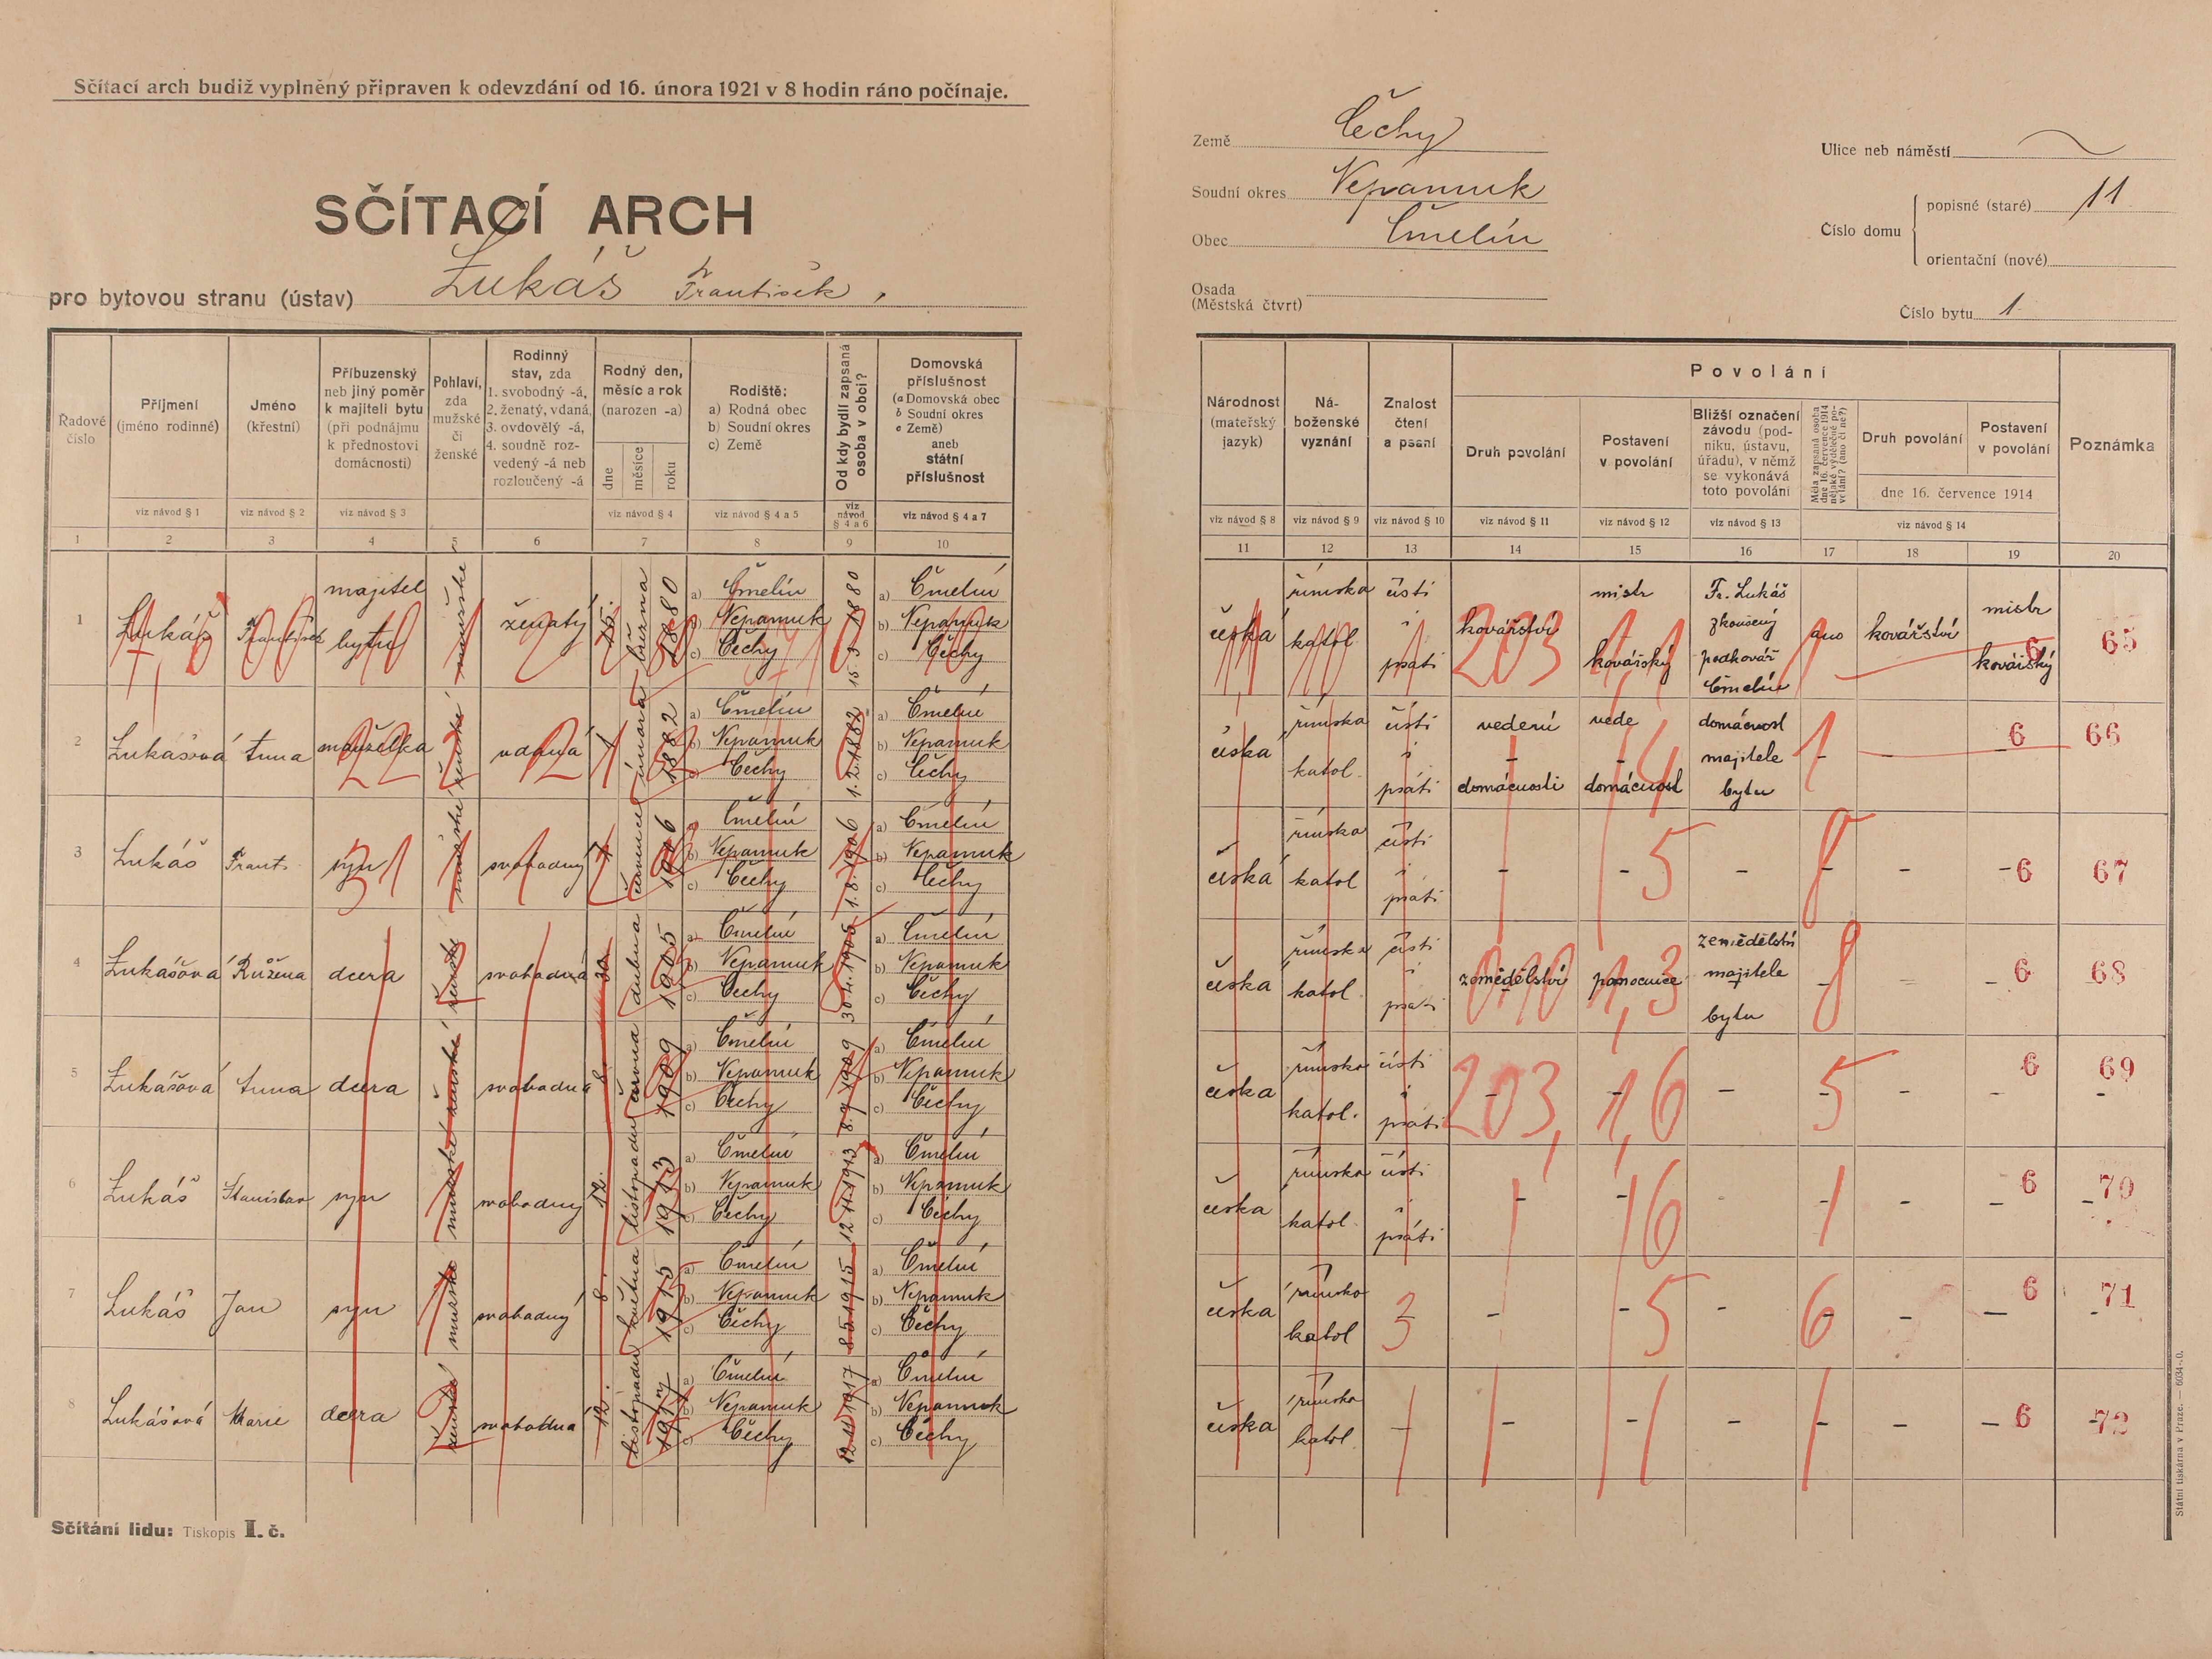 Sčítací arch budiž vyplněný připraven k odevzdání od 16. února 1921 v 8 hodin ráno počínaje.
SČÍTACÍ ARCH
pro bytovou stranu (ústav) Lukáš František.
Země Čechy
Soudní okres Nepomuk
Obec Čmelín
Osada
(Městská čtvrt)
Ulice neb náměstí
Číslo domu
popisné (staré) 11
orientační (nové)
Číslo bytu 1
Řadové číslo
Příjmení (jméno rodinné)
viz návod § 1
Jméno (křestní)
viz návod § 2
Příbuzenský neb jiný poměr k majiteli bytu (při podnájmu k přednostovi domácnosti)
viz návod § 3
Pohlaví, zda mužské či ženské
Rodinný stav, zda
1. svobodný -á,
2. ženatý, vdaná,
3. ovdovělý -á,
4. soudně rozvedený -á neb rozloučený -á
Rodný den, měsíc a rok (narozen -a)
dne měsíce roku
viz návod § 4
Rodiště:
a) Rodná obec
b) Soudní okres
c) Země
viz návod § 4 a 5
Od kdy bydlí zapsaná osoba v obci?
viz návod § 4 a 6
Domovská příslušnost
(a Domovská obec
b Soudní okres
c Země)
aneb státní příslušnost
viz návod § 4 a 7
1 2 3 4 5 6 7 8 9 10
1 Lukáš František majitel bytu mužské ženatý 15. března 1880 a) Čmelín b) Nepomuk c) Čechy 15.3 1880 a) Čmelín b) Nepomuk c) Čechy
2 Lukášová Anna manželka ženské vdaná 1 února 1882 a) Čmelín b) Nepomuk c) Čechy 1.2.1882 a) Čmelín b) Nepomuk c) Čechy
3 Lukáš Frant. syn mužské svobodný července 1906 a) Čmelín b) Nepomuk c) Čechy 1.8.1906 a) Čmelín b) Nepomuk c) Čechy
4 Lukášova Růžena dcera ženské svobodná 30 dubna 1905 a) Čmelín b) Nepomuk c) Čechy 30.4.1905 a) Čmelín b) Nepomuk c) Čechy
5 Lukášová Anna dcera ženské svobodná 8. června 1909 a) Čmelín b) Nepomuk c) Čechy 1909 a) Čmelín b) Nepomuk c) Čechy
6 Lukáš Stanislav syn mužské svobodný 12. listopadu 1913 a) Čmelín b) Nepomuk c) Čechy 12 11 1913 a) Čmelín b) Nepomuk c) Čechy
7 Lukáš Jan syn mužské svobodný 8. května 1915 a) Čmelín b) Nepomuk c) Čechy 8 5 1915 a) Čmelín b) Nepomuk c) Čechy
8 Lukášová Marie dcera ženské svobodná 12. listopadu 1917 a) Čmelín b) Nepomuk c) Čechy 12 11 1917 a) Čmelín b) Nepomuk c) Čechy
Sčítání lidu: Tiskopis I. č.
Národnost (mateřský jazyk)
viz návod § 8
Náboženské vyznání
viz návod § 9
Znalost čtení a psaní
viz návod § 10
Povolání
Druh povolání
viz návod § 11
Postavení v povolání
viz návod § 12
Bližší označení závodu (podniku, ústavu, úřadu), v němž se vykonává toto povolání
viz návod § 13
Měla zapsaná osoba dne 16. července 1914 nějaké výdělečné povolání? (ano či ne?)
Druh povolání
Postavení v povolání
dne 16. července 1914
viz návod § 14
Poznámka
11 12 13 14 15 16 17 18 19 20
česka římska katol čísti i psati kovářství 203 mistr kovářský Fr. Lukáš zkoušený podkovář Čmelín ano kovářství mistr kovářský 6 65
česka římska katol. čísti i psáti vedení domácnosti vede domácnost domácnost majitele bytu - 6 66
česká římska katol čísti i psáti - - 5 - - 8 - - 6 67
česka římska katol. čísti i psati zemědělství pomocnice 1,3 zemědělství majitele bytu - 8 - - 6 68
česka římska katol. čísti i psáti 203, 1,6 - - 5 - - 6 69
česka římska katol. čísti i psáti - - 16 - - 6 - 70
česka římsko katol 3 - - 5 - 6 - - 6 - 71
česka římsko katol. - - - - - - - 6 - 72
Státní tiskárna v Praze. — 6034-20.